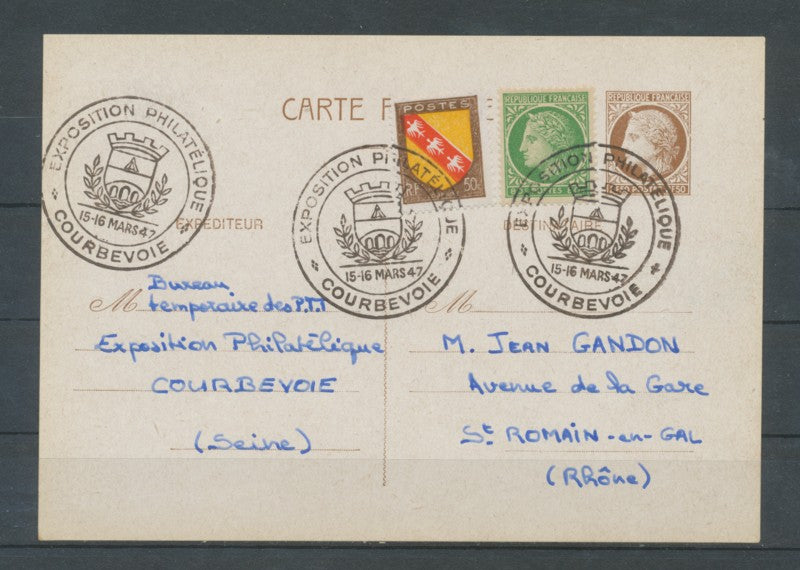 CARTE
POSTES
RF 50c
REPUBLIQUE FRANÇAISE
POSTES
REPUBLIQUE FRANÇAISE
POSTES
EXPOSITION PHILATÉLIQUE
15-16 MARS 47
COURBEVOIE
EXPOSITION PHILATÉLIQUE
15-16 MARS 47
COURBEVOIE
EXPOSITION PHILATÉLIQUE
15-16 MARS 47
COURBEVOIE
EXPÉDITEUR
DESTINATAIRE
M Bureau
temporaire des P.T.T
Exposition Philatélique
COURBEVOIE
(Seine)
M
M. JEAN GANDON
Avenue de la Gare
St ROMAIN-en-GAL
(Rhône)